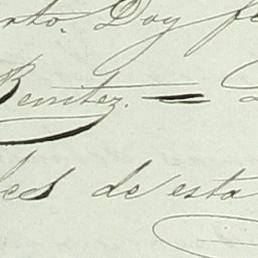 rto. Doy fe
Benitez. —
des de esta